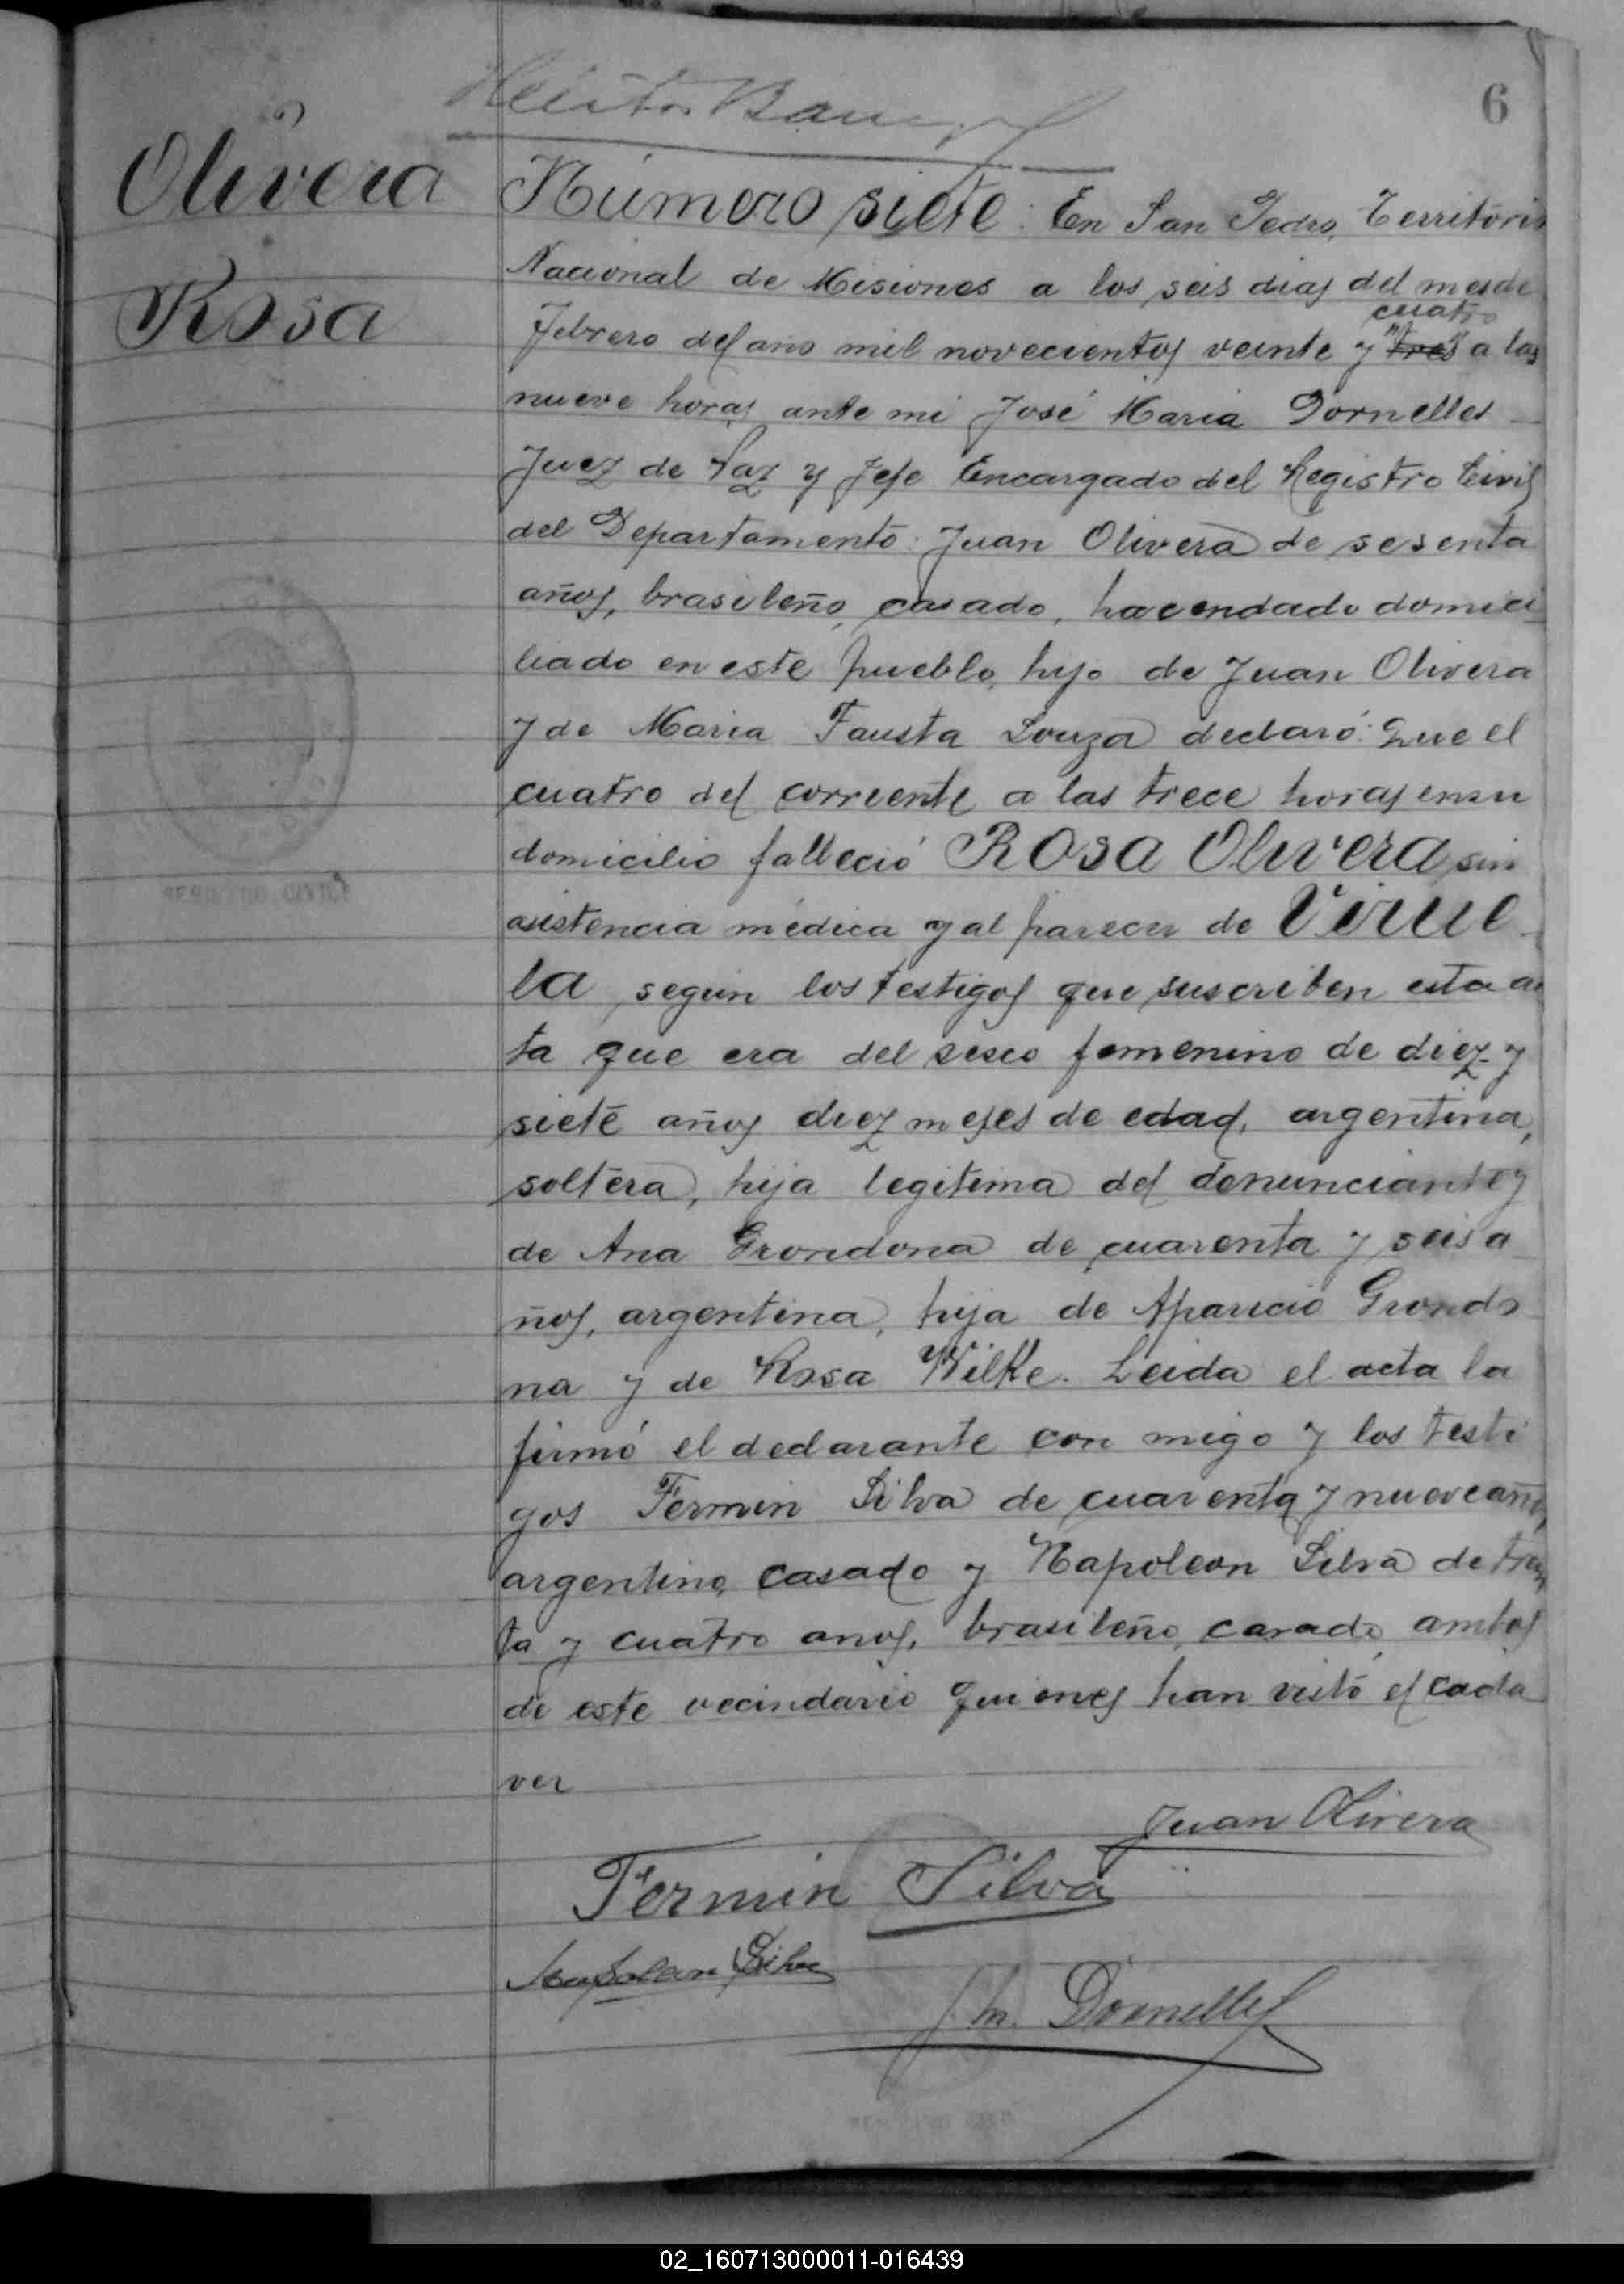 6
Olivera
Rosa
Número siete: En San Pedro, Territorio
Nacional de Misiones a los seis dias del mes de
cuatro
Febrero del año mil novecientos veinte y "tres" a las
nueve horas ante mi José Maria Dornelles
Juez de Paz y Jefe Encargado del Registro Civil
del Departamento: Juan Olivera de sesenta
años, brasileño, casado, hacendado domici
liado en este pueblo, hijo de Juan Olivera
y de Maria Fausta Souza declaró: Que el
cuatro del corriente a las trece horas en su
domicilio falleció Rosa Olivera sin
asistencia médica y al parecer de Virue
la según los testigos que suscriben esta ac
ta que era del sexo femenino de diez y
siete años diez meses de edad, argentina,
soltera, hija legitima del denunciante y
de Ana Grondona de cuarenta y seis a
ños, argentina, hija de Aparicio Grondo
na y de Rosa Wilke. Leida el acta la
firmó el declarante con migo y los testi
gos Fermin Silva de cuarenta y nueve años,
argentino, casado y Napoleon Silva de trein
ta y cuatro anos, brasileño, casado, ambos
de este vecindario quienes han visto el cada
ver
Juan Olivera
Fermin Silva
Napolean Silva
J. M. Dornelles
REGISTRO CIVIL
02_160713000011-016439